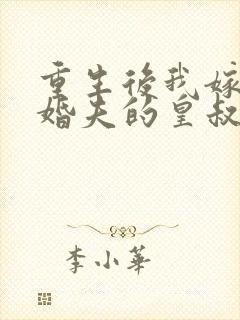 重生後我嫁
婚夫的皇叔
李小華